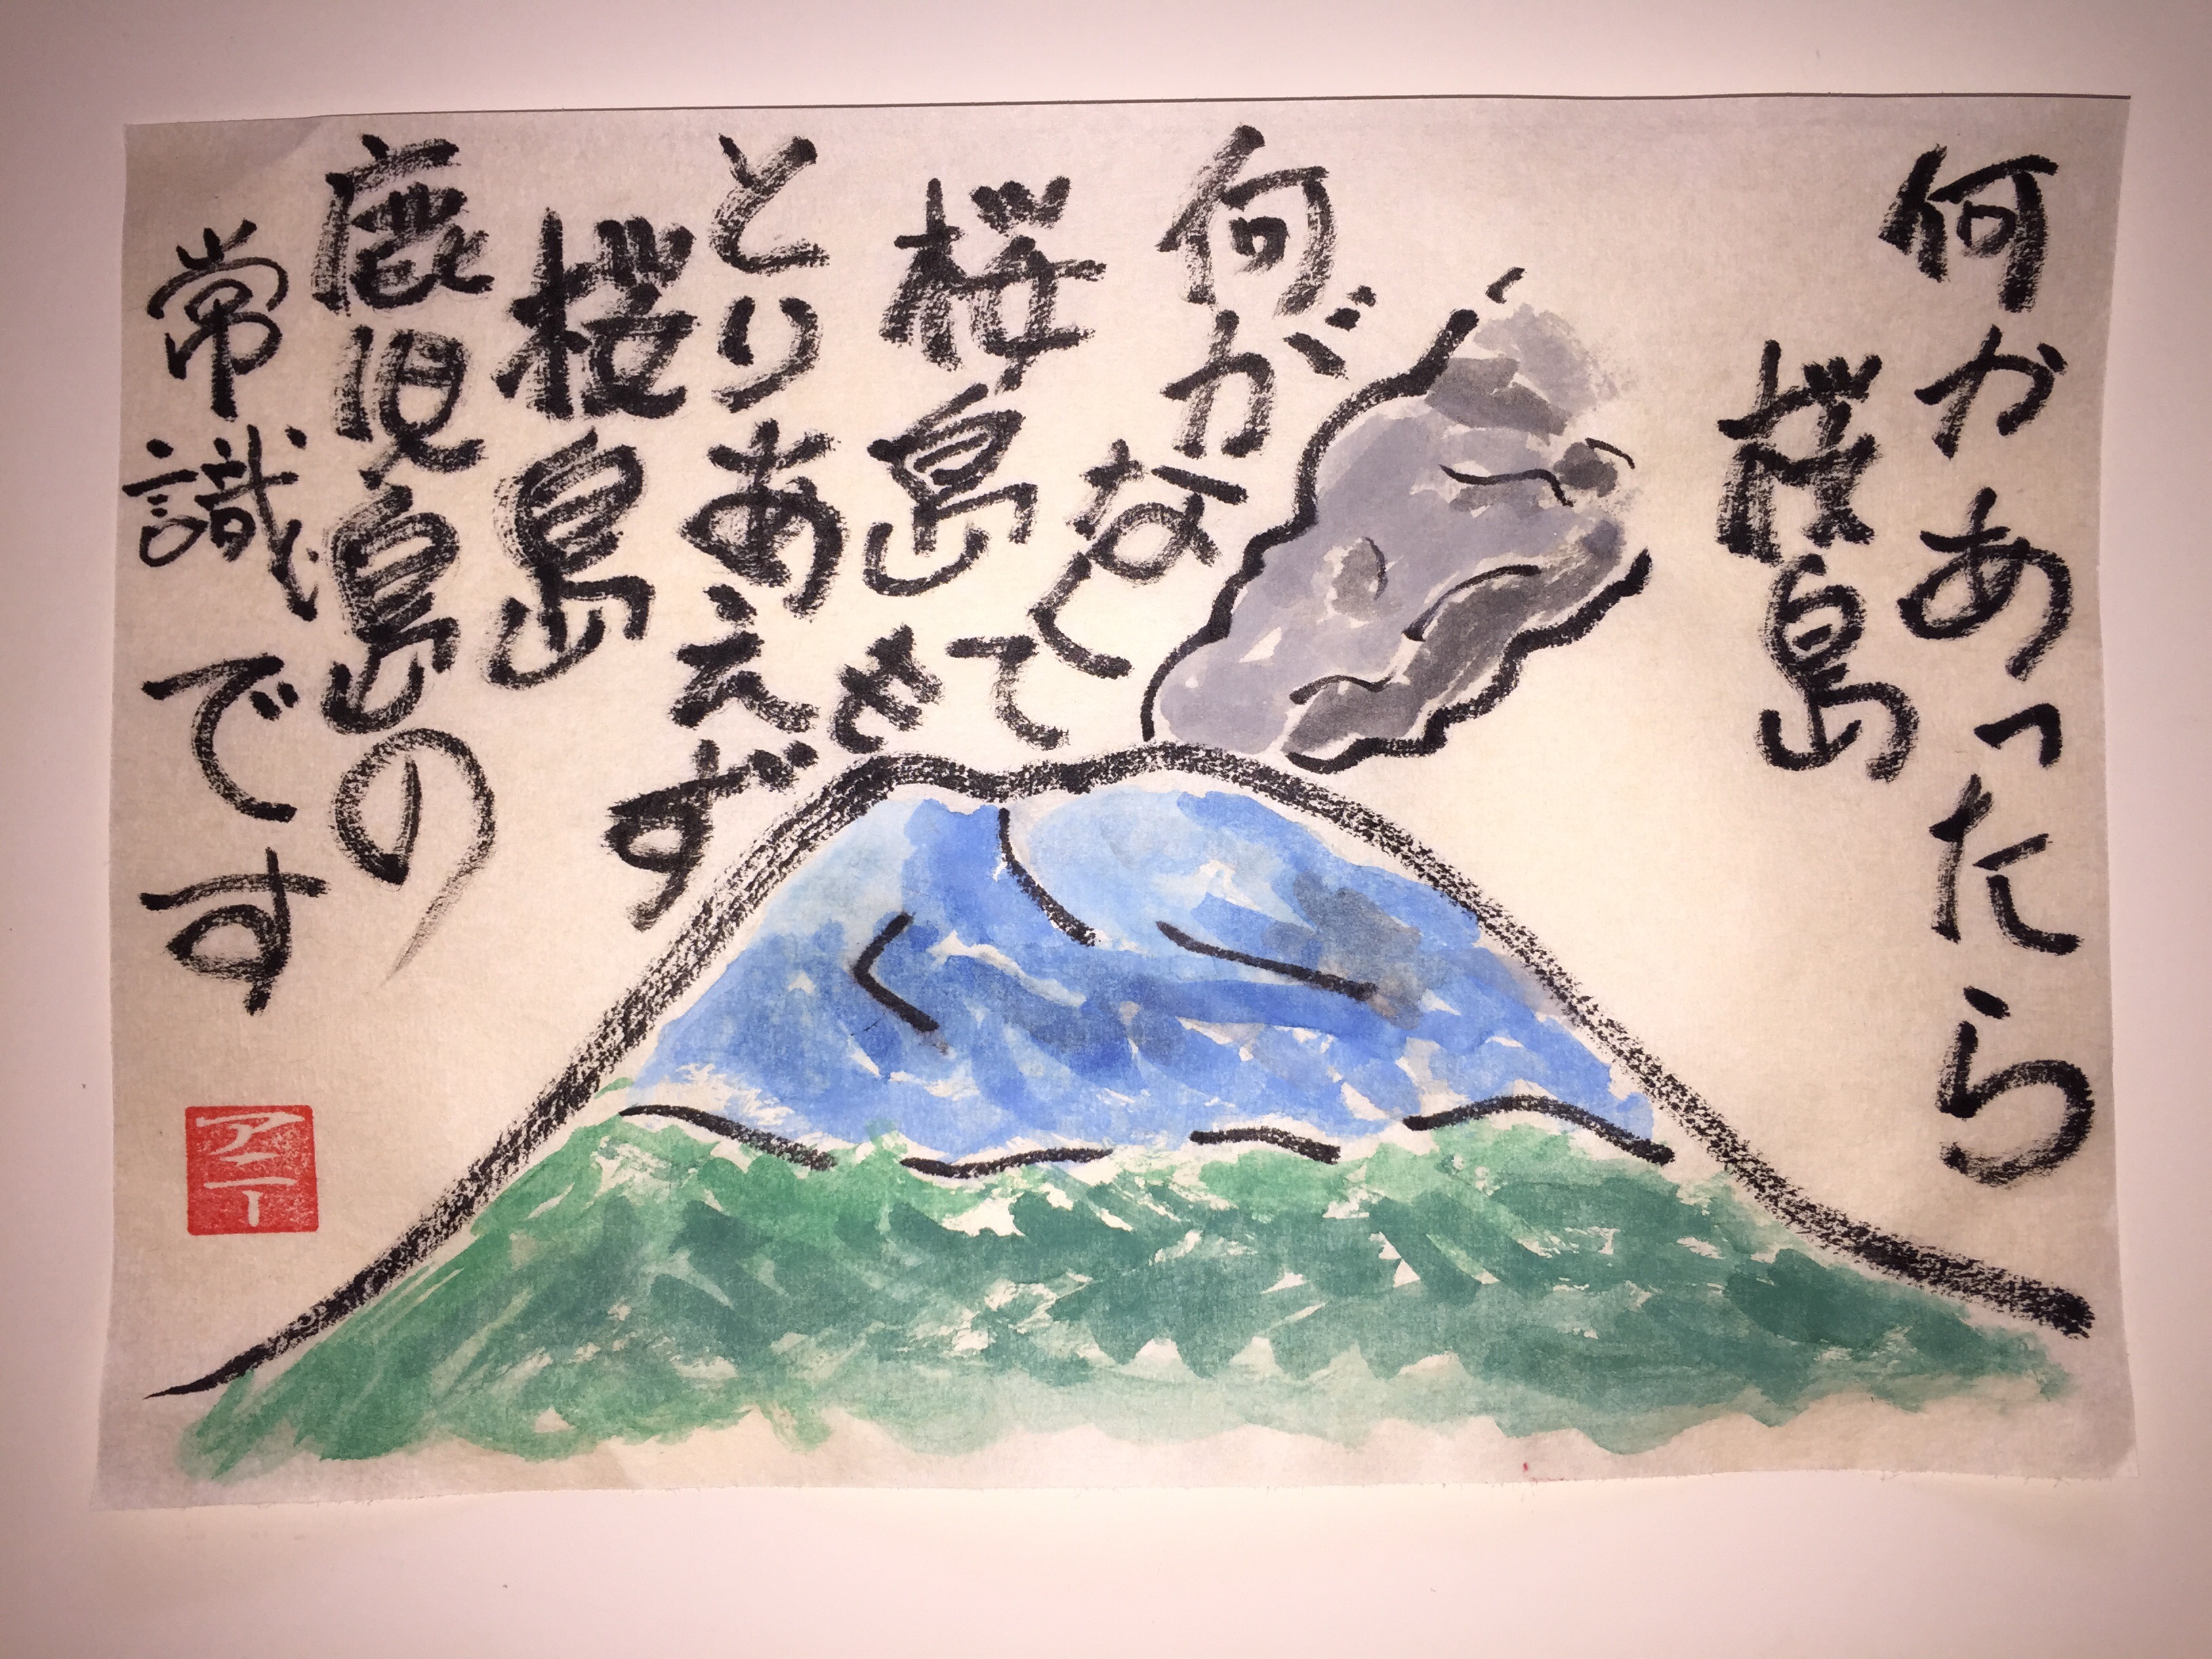 何かあったら
桜島
何がなくても
桜島
とりあえず
桜島
鹿児島の
常識です
アニー